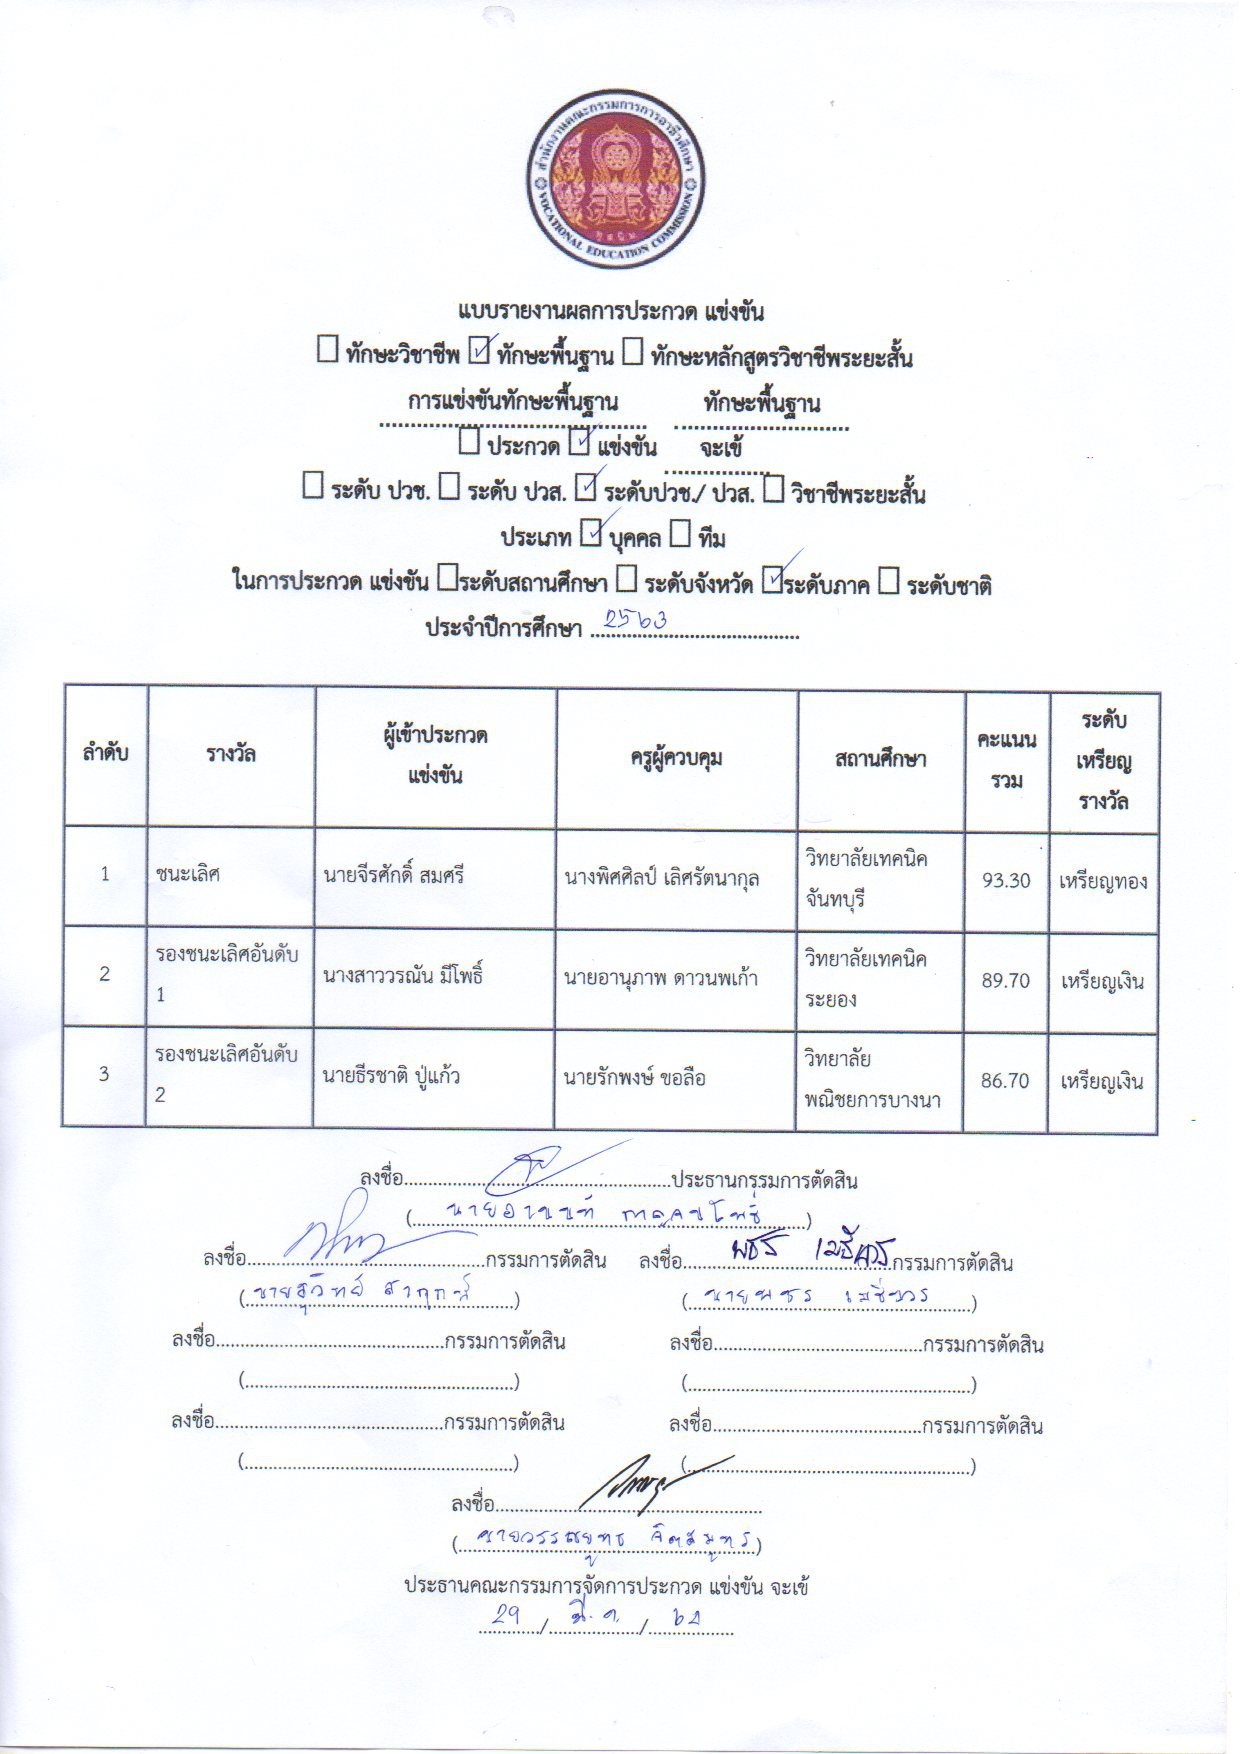 สำนักงานคณะกรรมการการอาชีวศึกษา
VOCATIONAL EDUCATION COMMISSION
แบบรายงานผลการประกวด แข่งขัน
ทักษะวิชาชีพ ทักษะพื้นฐาน ทักษะหลักสูตรวิชาชีพระยะสั้น
การแข่งขันทักษะพื้นฐาน ทักษะพื้นฐาน
ประกวด แข่งขัน จะเข้
ระดับ ปวช. ระดับ ปวส. ระดับปวช./ ปวส. วิชาชีพระยะสั้น
ประเภท บุคคล ทีม
ในการประกวด แข่งขัน ระดับสถานศึกษา ระดับจังหวัด ระดับภาค ระดับชาติ
ประจำปีการศึกษา 2563
ลำดับ รางวัล ผู้เข้าประกวด แข่งขัน ครูผู้ควบคุม สถานศึกษา คะแนน รวม ระดับ เหรียญ รางวัล
1 ชนะเลิศ นายจีรศักดิ์ สมศรี นางพิศศิลป์ เลิศรัตนากุล วิทยาลัยเทคนิค จันทบุรี 93.30 เหรียญทอง
2 รองชนะเลิศอันดับ 1 นางสาววรณัน มีโพธิ์ นายอานุภาพ ดาวนพเก้า วิทยาลัยเทคนิค ระยอง 89.70 เหรียญเงิน
3 รองชนะเลิศอันดับ 2 นายธีรชาติ ปู่แก้ว นายรักพงษ์ ขอลือ วิทยาลัย พณิชยการบางนา 86.70 เหรียญเงิน
ลงชื่อ ประธานกรรมการตัดสิน
(นายอานนท์)
ลงชื่อ กรรมการตัดสิน ลงชื่อ กรรมการตัดสิน
(นายสุวิทย์) (นายพชร)
ลงชื่อ กรรมการตัดสิน ลงชื่อ กรรมการตัดสิน
ลงชื่อ กรรมการตัดสิน ลงชื่อ กรรมการตัดสิน
ลงชื่อ
(นายวรรณยุทธ จิตสมุทร)
ประธานคณะกรรมการจัดการประกวด แข่งขัน จะเข้
29 / มี.ค. / 64